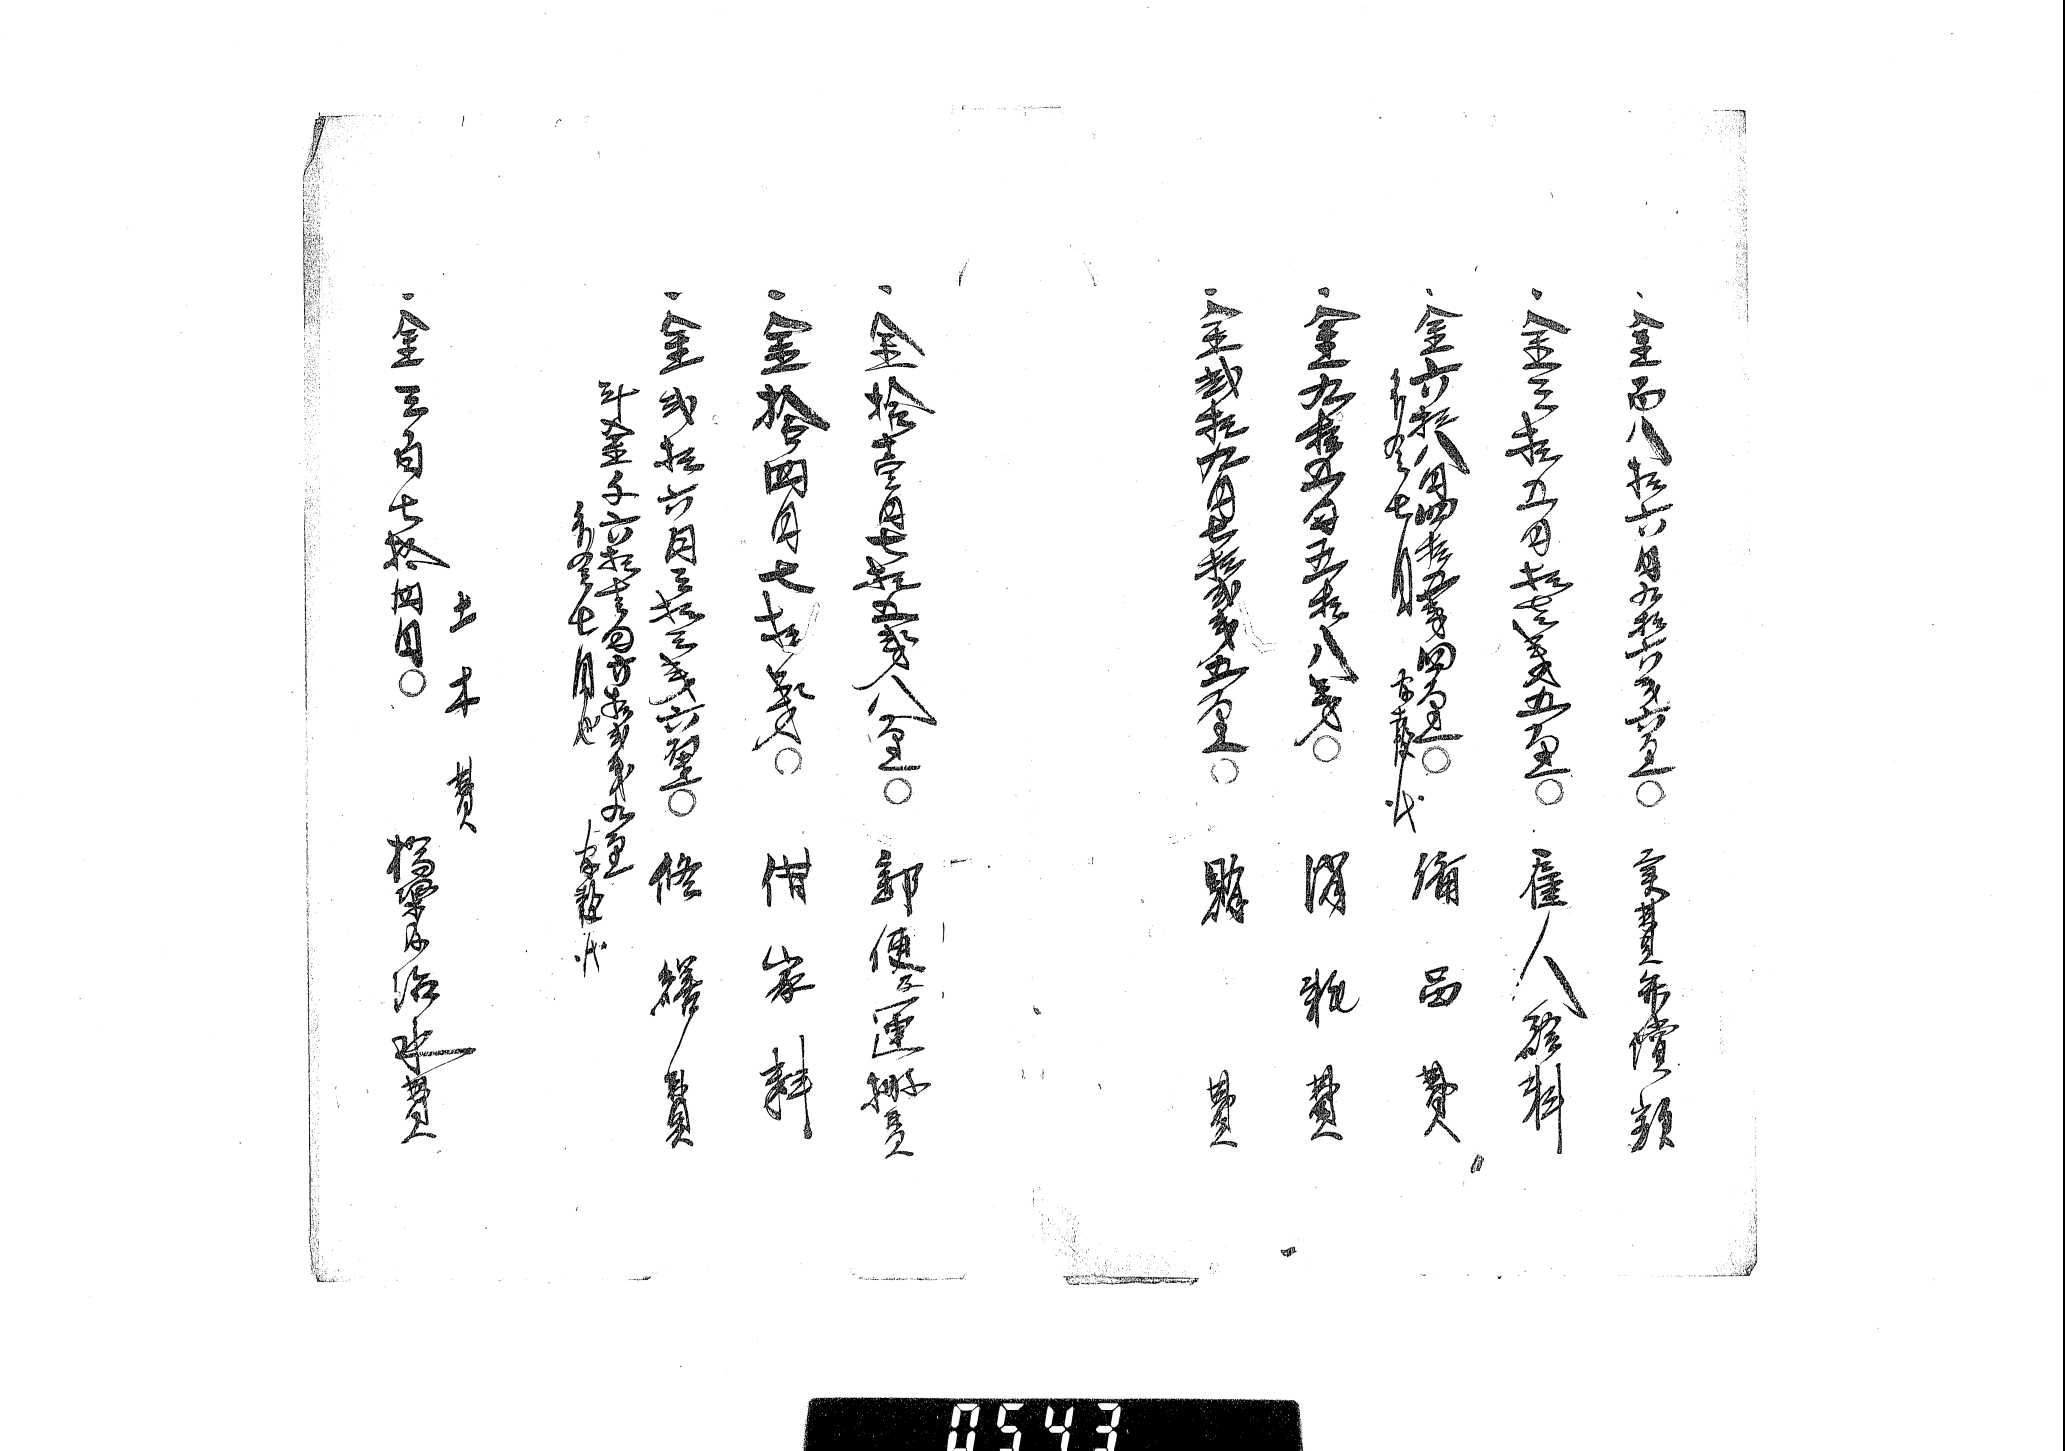 一金百八拾六円九拾六銭六厘○ 実費弁償額
一金三拾五円拾壱銭五厘○ 雇人給料
一金六拾八円四拾五銭四厘○ 備品費
一金九拾五円五拾八銭○ 消耗費
一金弐拾九円七拾弐銭五厘○ 賄費
一金拾壱円七拾五銭八厘○ 郵便及運搬費
一金拾四円七拾銭○ 借家料
一金弐拾六円三拾三銭六厘○ 修繕費
計金千六拾壱円
七月
土木費
一金三百七拾四円○ 橋梁及治水費
0543